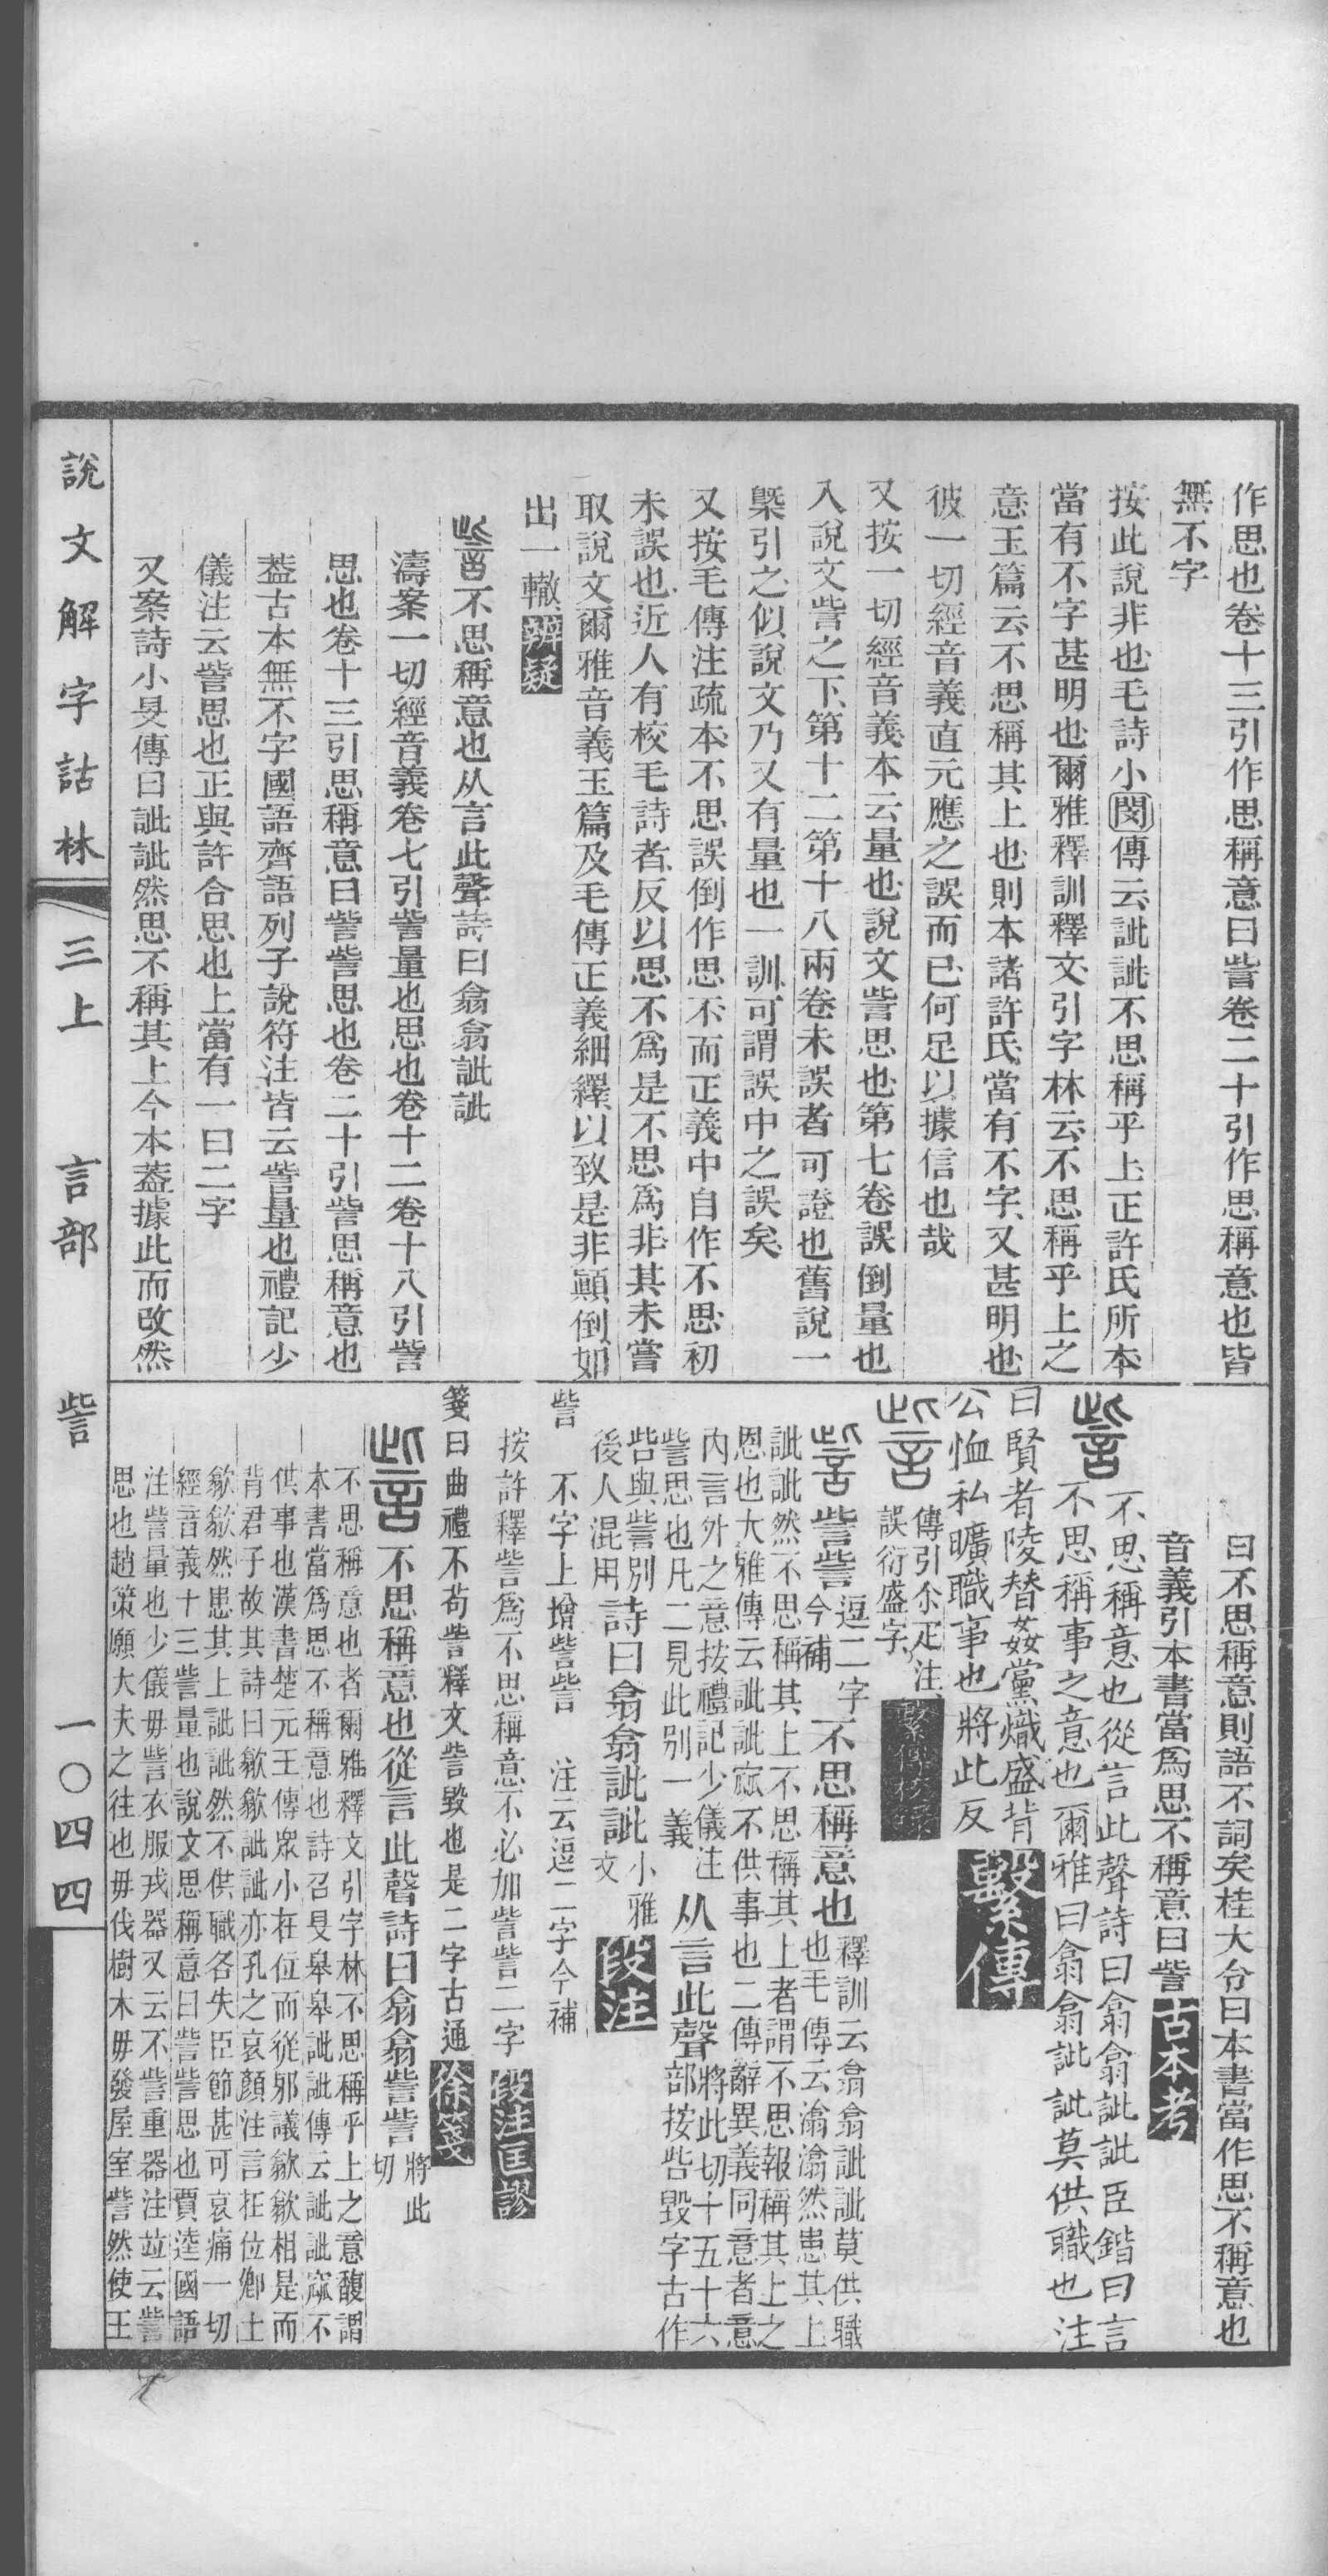 作思也卷十三引作思稱意曰訾卷二十引作思稱意也皆
無不字
按此說非也毛詩小閔傳云訿訿不思稱乎上正許氏所本
當有不字甚明也爾雅釋訓釋文引字林云不思稱乎上之
意玉篇云不思稱其上也則本諸許氏當有不字又甚明也
彼一切經音義直元應之誤而已何足以據信也哉
又按一切經音義本云量也說文訾思也第七卷誤倒量也
入說文訾之下第十二第十八兩卷未誤者可證也舊說一
槩引之似說文乃又有量也一訓可謂誤中之誤矣
又按毛傳注疏本不思誤倒作思不而正義中自作不思初
未誤也近人有校毛詩者反以思不爲是不思爲非其未嘗
取說文爾雅音義玉篇及毛傳正義細繹以致是非顚倒如
出一轍辨疑
訾不思稱意也从言此聲詩曰翕翕訿訿
濤案一切經音義卷七引訾量也思也卷十二卷十八引訾
思也卷十三引思稱意曰訾訾思也卷二十引訾思稱意也
葢古本無不字國語齊語列子說符注皆云訾量也禮記少
儀注云訾思也正與許合思也上當有一曰二字
又案詩小旻傳曰訿訿然思不稱其上今本葢據此而改然
曰不思稱意則語不詞矣桂大令曰本書當作思不稱意也
音義引本書當爲思不稱意曰訾古本考
訾不思稱意也從言此聲詩曰翕翕訿訿臣鍇曰言
不思稱事之意也爾雅曰翕翕訿訿莫供職也注
曰賢者陵替姦黨熾盛背
公恤私曠職事也將此反繫傳
訾傳引尒疋注
誤衍盛字
訾訾訾逗二字
今補不思稱意也釋訓云翕翕訿訿莫供職
也毛傳云潝潝然患其上
訿訿然不思稱其上不思稱其上者謂不思報稱其上之
恩也大雅傳云訿訿窳不供事也二傳辭異義同意者意
內言外之意按禮記少儀注
訾思也凡二見此別一義从言此聲將此切十五十六
部按呰毁字古作
呰與訾別
後人混用詩曰翕翕訿訿小雅
文段注
訾
不字上增訾訾　注云逗二字今補
按許釋訾爲不思稱意不必加訾訾二字段注匡謬
箋曰曲禮不苟訾釋文訾毀也是二字古通徐箋
訾不思稱意也從言此聲詩曰翕翕訾訾將此
切
不思稱意也者爾雅釋文引字林不思稱乎上之意馥謂
本書當爲思不稱意也詩召旻皋皋訿訿傳云訿訿窳不
供事也漢書楚元王傳眾小在位而從邪議歙歙相是而
背君子故其詩曰歙歙訿訿亦孔之哀顏注言在位卿士
歙歙然患其上訿訿然不供職各失臣節甚可哀痛一切
經音義十三訾量也說文思稱意曰訾訾思也賈逵國語
注訾量也少儀毋訾衣服戎器又云不訾重器注竝云訾
思也趙策願大夫之往也毋伐樹木毋發屋室訾然使王
說文解字詁林
三上
言部
訾
一〇四四